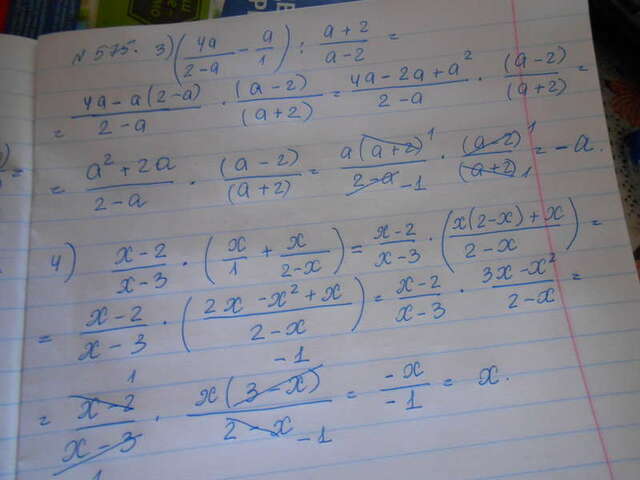 № 575. 3) (4a/(2-a) - a/1) : (a+2)/(a-2) =
= (4a-a(2-a))/(2-a) · (a-2)/(a+2) = (4a-2a+a²)/(2-a) · (a-2)/(a+2) =
= (a²+2a)/(2-a) · (a-2)/(a+2) = a(a+2) 1/(2-a) -1 · (a-2) 1/(a+2) 1 = -a.
4) (x-2)/(x-3) · (x/1 + x/(2-x)) = (x-2)/(x-3) · (x(2-x)+x)/(2-x) =
= (x-2)/(x-3) · (2x-x²+x)/(2-x) = (x-2)/(x-3) · (3x-x²)/(2-x) =
= (x-2) 1/(x-3) 1 · x(3-x) -1/(2-x) -1 = -x/-1 = x.